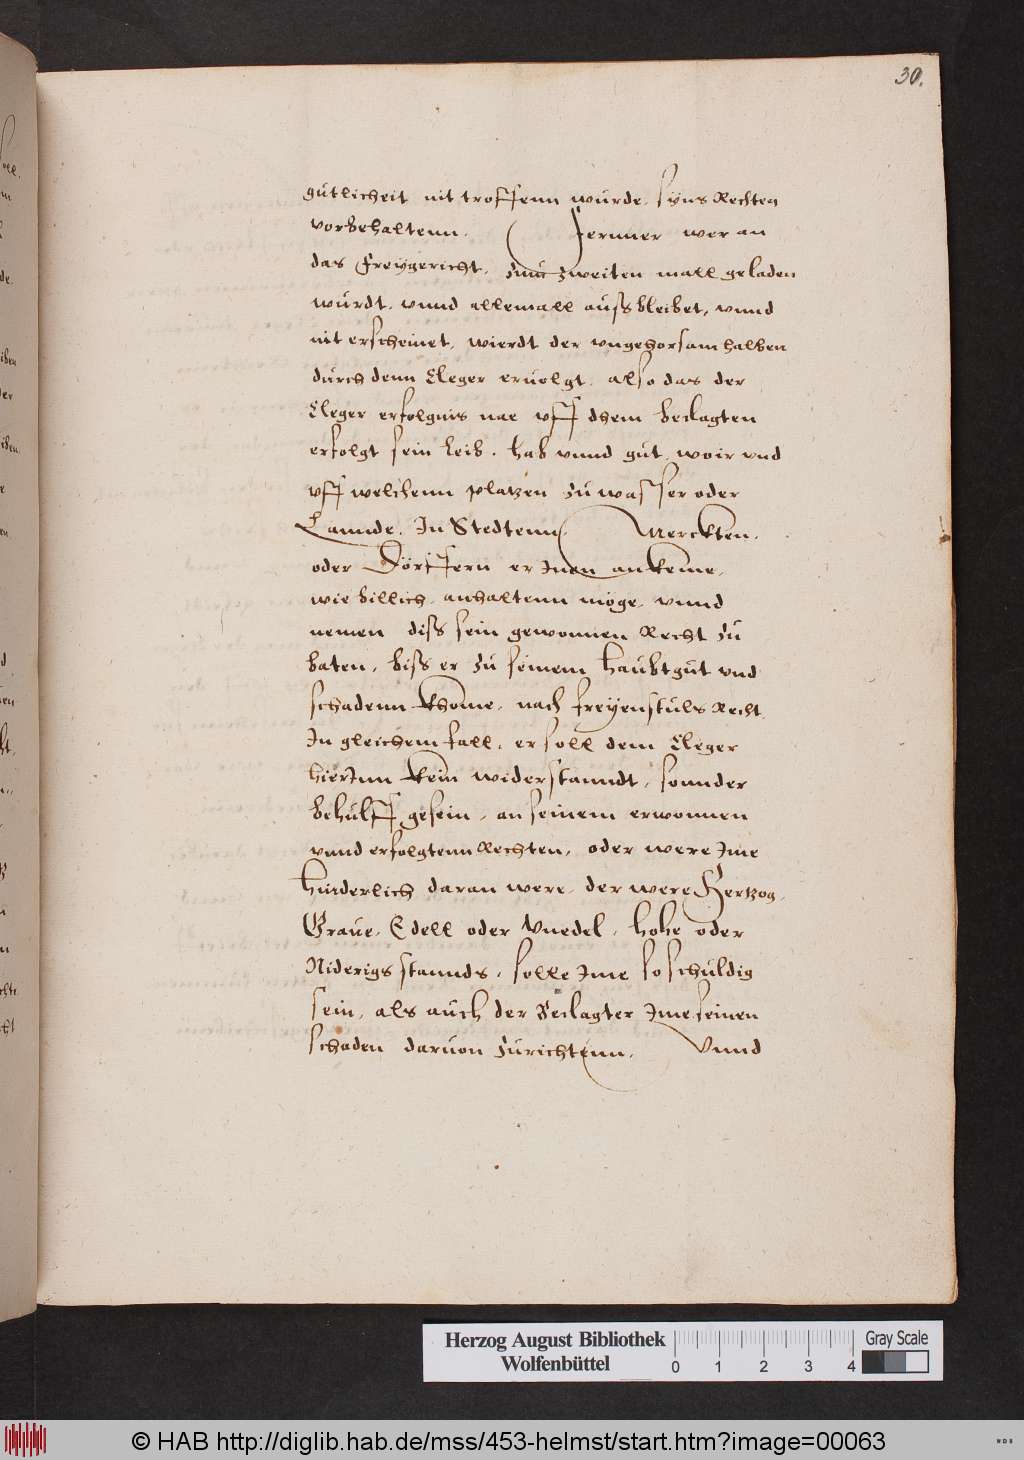 30.
gutlicheit nit troffenn wurde, syns Rechten
vorbehaltenn. Fernner wer an
das Freygericht, zum zweiten mall geladen
wurdt, vnnd allemall aussbleibet, vnnd
nit erscheinet, wierdt der vngehorsam halben
durch denn Cleger eruolgt, also das der
Cleger erfolgnis nae vff dhem beclagten
erfolgt sein leib, hab vnnd gut, woir vnd
vff welchenn platzen zu wasser oder
Lannde, In Stedtenn, Merckten,
oder Dörffern er Inen ankeme,
wie billich, anhaltenn möge, vnnd
nemen diss sein gewonnen Recht zu
baten, biss er zu seinem haubtgut vnd
schadenn khome, nach freyenstuls Recht
In gleichem fall, er soll dem Cleger
hierInn kein widerstanndt, sonnder
behulff gesein, an seinem erwonnen
vnnd erfolgtenn Rechten, oder were Ime
hinderlich daran were, der were Hertzog,
Graue, Edell oder Vnedel, hohe oder
Niderigs stannds, solle Ime so schuldig
sein, als auch der Beclagter Ime seinen
schaden daruon zurichtenn, Vnnd
Herzog August Bibliothek
Wolfenbüttel
0 1 2 3 4
Gray Scale
© HAB http://diglib.hab.de/mss/453-helmst/start.htm?image=00063